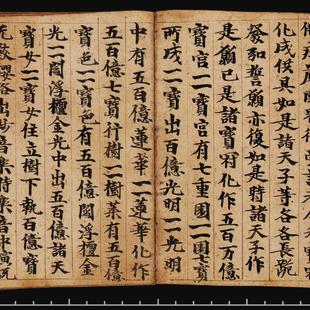 化成供具如是諸天子等各各長跪
發和誓願亦復如是時諸天子作
是願已是諸寶冠化作五百万億
寶宮一一寶宮有七重園一一園七寶
所成一一寶出百億光明一一光明
中有五百億蓮華一一蓮華化作
五百億七寶行樹一一樹葉有五百億
寶色一一寶色有五百億閻浮檀金
光一一閻浮檀金光中出五百億諸天
寶女一一寶女住立樹下執百億寶
无數瓔珞出妙音樂時樂音中演說